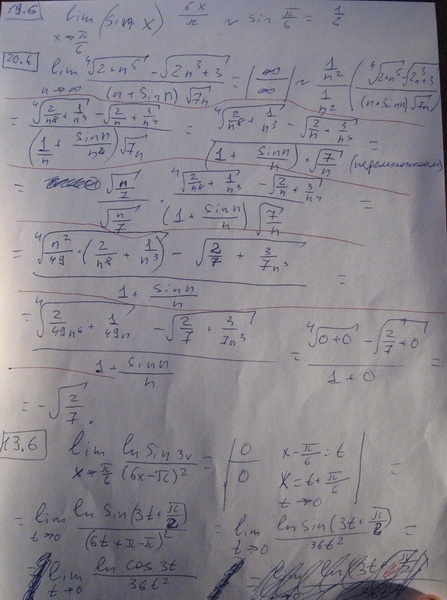 19.6 lim x→π/6 (sin x)^(6x/π) ~ sin π/6 = 1/6
20.6 lim n→∞ (⁴√(2+n⁵) − √(2n³+3)) / ((n+sin n)√(7n)) = |∞/∞| ~ (1/n²)/(1/n²) (⁴√(2+n⁵) − √(2n³+3)) / ((n+sin n)√(7n))
= (⁴√(2/n⁸ + 1/n³) − √(2/n + 3/n⁴)) / ((1/n + sin n/n²)√(7n)) = (⁴√(2/n⁸ + 1/n³) − √(2/n + 3/n⁴)) / ((1 + sin n/n) · √(7/n)) =
= √(n/7)/√(n/7) · (⁴√(2/n⁸ + 1/n³) − √(2/n + 3/n⁴)) / ((1 + sin n/n) √(7/n)) =
= (⁴√(n²/49 · (2/n⁸ + 1/n³)) − √(2/7 + 3/7n³)) / (1 + sin n/n) =
= (⁴√(2/49n⁶ + 1/49n) − √(2/7 + 3/7n³)) / (1 + sin n/n) = (⁴√(0+0) − √(2/7+0)) / (1+0)
= −√(2/7).
13.6 lim x→π/6 ln sin 3x / (6x−π)² = |0/0 x − π/6 = t x = t + π/6 t→0| =
= lim t→0 ln sin(3t + π/2) / (6t+π−π)² = lim t→0 ln sin(3t + π/2) / 36t² =
= lim t→0 ln cos 3t / 36t² =